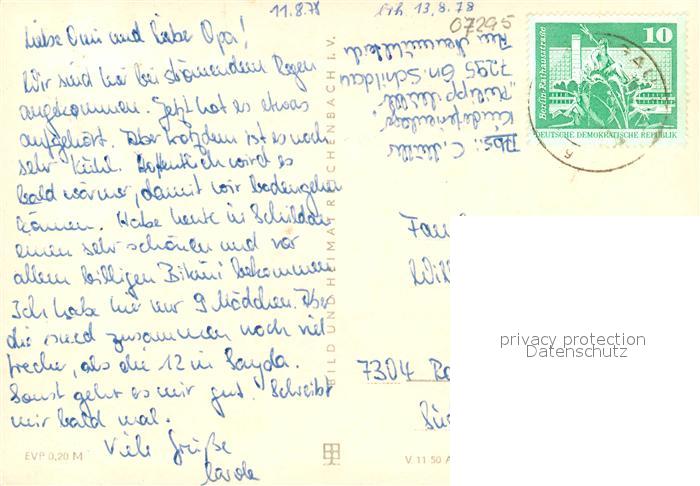 11.8.78
13.8.78
07295
Liebe Omi und liebe Opa!
Wir sind hier bei strömendem Regen
angekommen. Jetzt hat es etwas
aufgehört. Aber trotzdem ist es noch
sehr kühl. Hoffentlich wird es
bald wärmer, damit wir badengehen
können. Habe heute in Schildau
einen sehr schönen und vor
allem billigen Bikini bekommen
Ich habe hier nur 9 Mädchen. Aber
die sind zusammen noch viel
frecher, als die 12 in Sayda.
Sonst geht es mir gut. Schreibt
mir bald mal.
Viele Grüße
Carola
EVP 0,20 M
BILD UND HEIMAT REICHENBACH I. V.
V 11 50 A
Abs.: C. Müller
Kinderferienlager
"Philipp Müller"
7295 Schildau
Neumühle
10
Berlin-Rathausstraße
DEUTSCHE DEMOKRATISCHE REPUBLIK
Fam
7304 Ro
privacy protection
Datenschutz